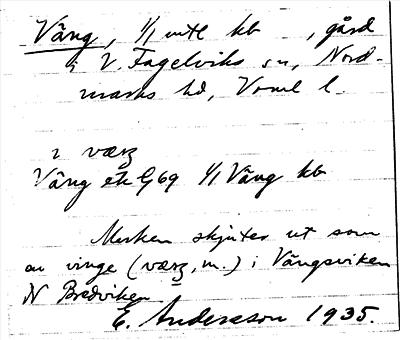 Vång, 1/1 mtl kb , gård
i V. Fågelviks sn, Nord-
marks hd, Vrml l.
i væŋ
Vång ek G 69 1/1 Vång kb
Marken skjuter ut som
en vinge (væŋ, m.) i Vångsviken
N Bredviken
E. Andersson 1935.